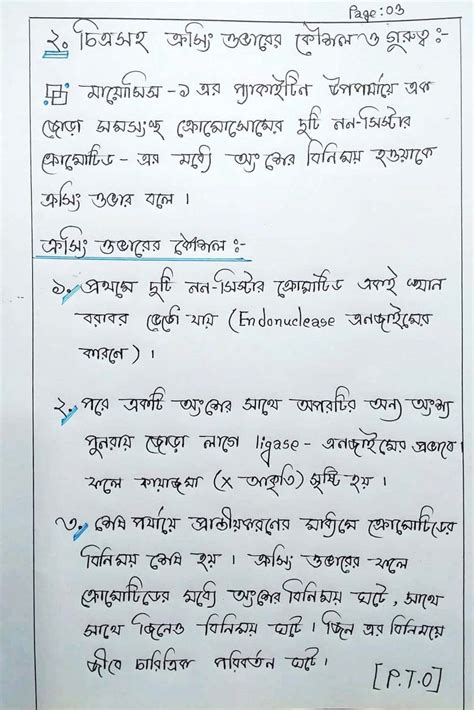 Page: 03
২. চিত্রসহ ক্রসিং ওভারের কৌশল ও গুরুত্ব :-
মায়োসিস -১ এর প্যাকাইটিন উপপর্যায়ে এক
জোড়া সমসংস্থ ক্রোমোসোমের দুটি নন-সিস্টার
ক্রোমাটিড - এর মধ্যে অংশের বিনিময় হওয়াকে
ক্রসিং ওভার বলে ।
ক্রসিং ওভারের কৌশল :-
১. প্রথমে দুটি নন-সিস্টার ক্রোমাটিড একই স্থান
বরাবর ভেঙ্গে যায় (Endonuclease এনজাইমের
কারণে) ।
২. পরে একটি অংশের সাথে অপরটির অন্য অংশ
পুনরায় জোড়া লাগে ligase - এনজাইমের প্রভাবে
ফলে কায়াজমা (X আকৃতি) সৃষ্টি হয় ।
৩. শেষ পর্যায়ে প্রান্তীয়করণের মাধ্যমে ক্রোমাটিডের
বিনিময় শেষ হয় । ক্রসিং ওভারের ফলে
ক্রোমাটিডের মধ্যে অংশের বিনিময় ঘটে , সাথে
সাথে জিনেও বিনিময় ঘটে । জিন এর বিনিময়ে
জীবে চারিত্রিক পরিবর্তন ঘটে ।
[P.T.O]